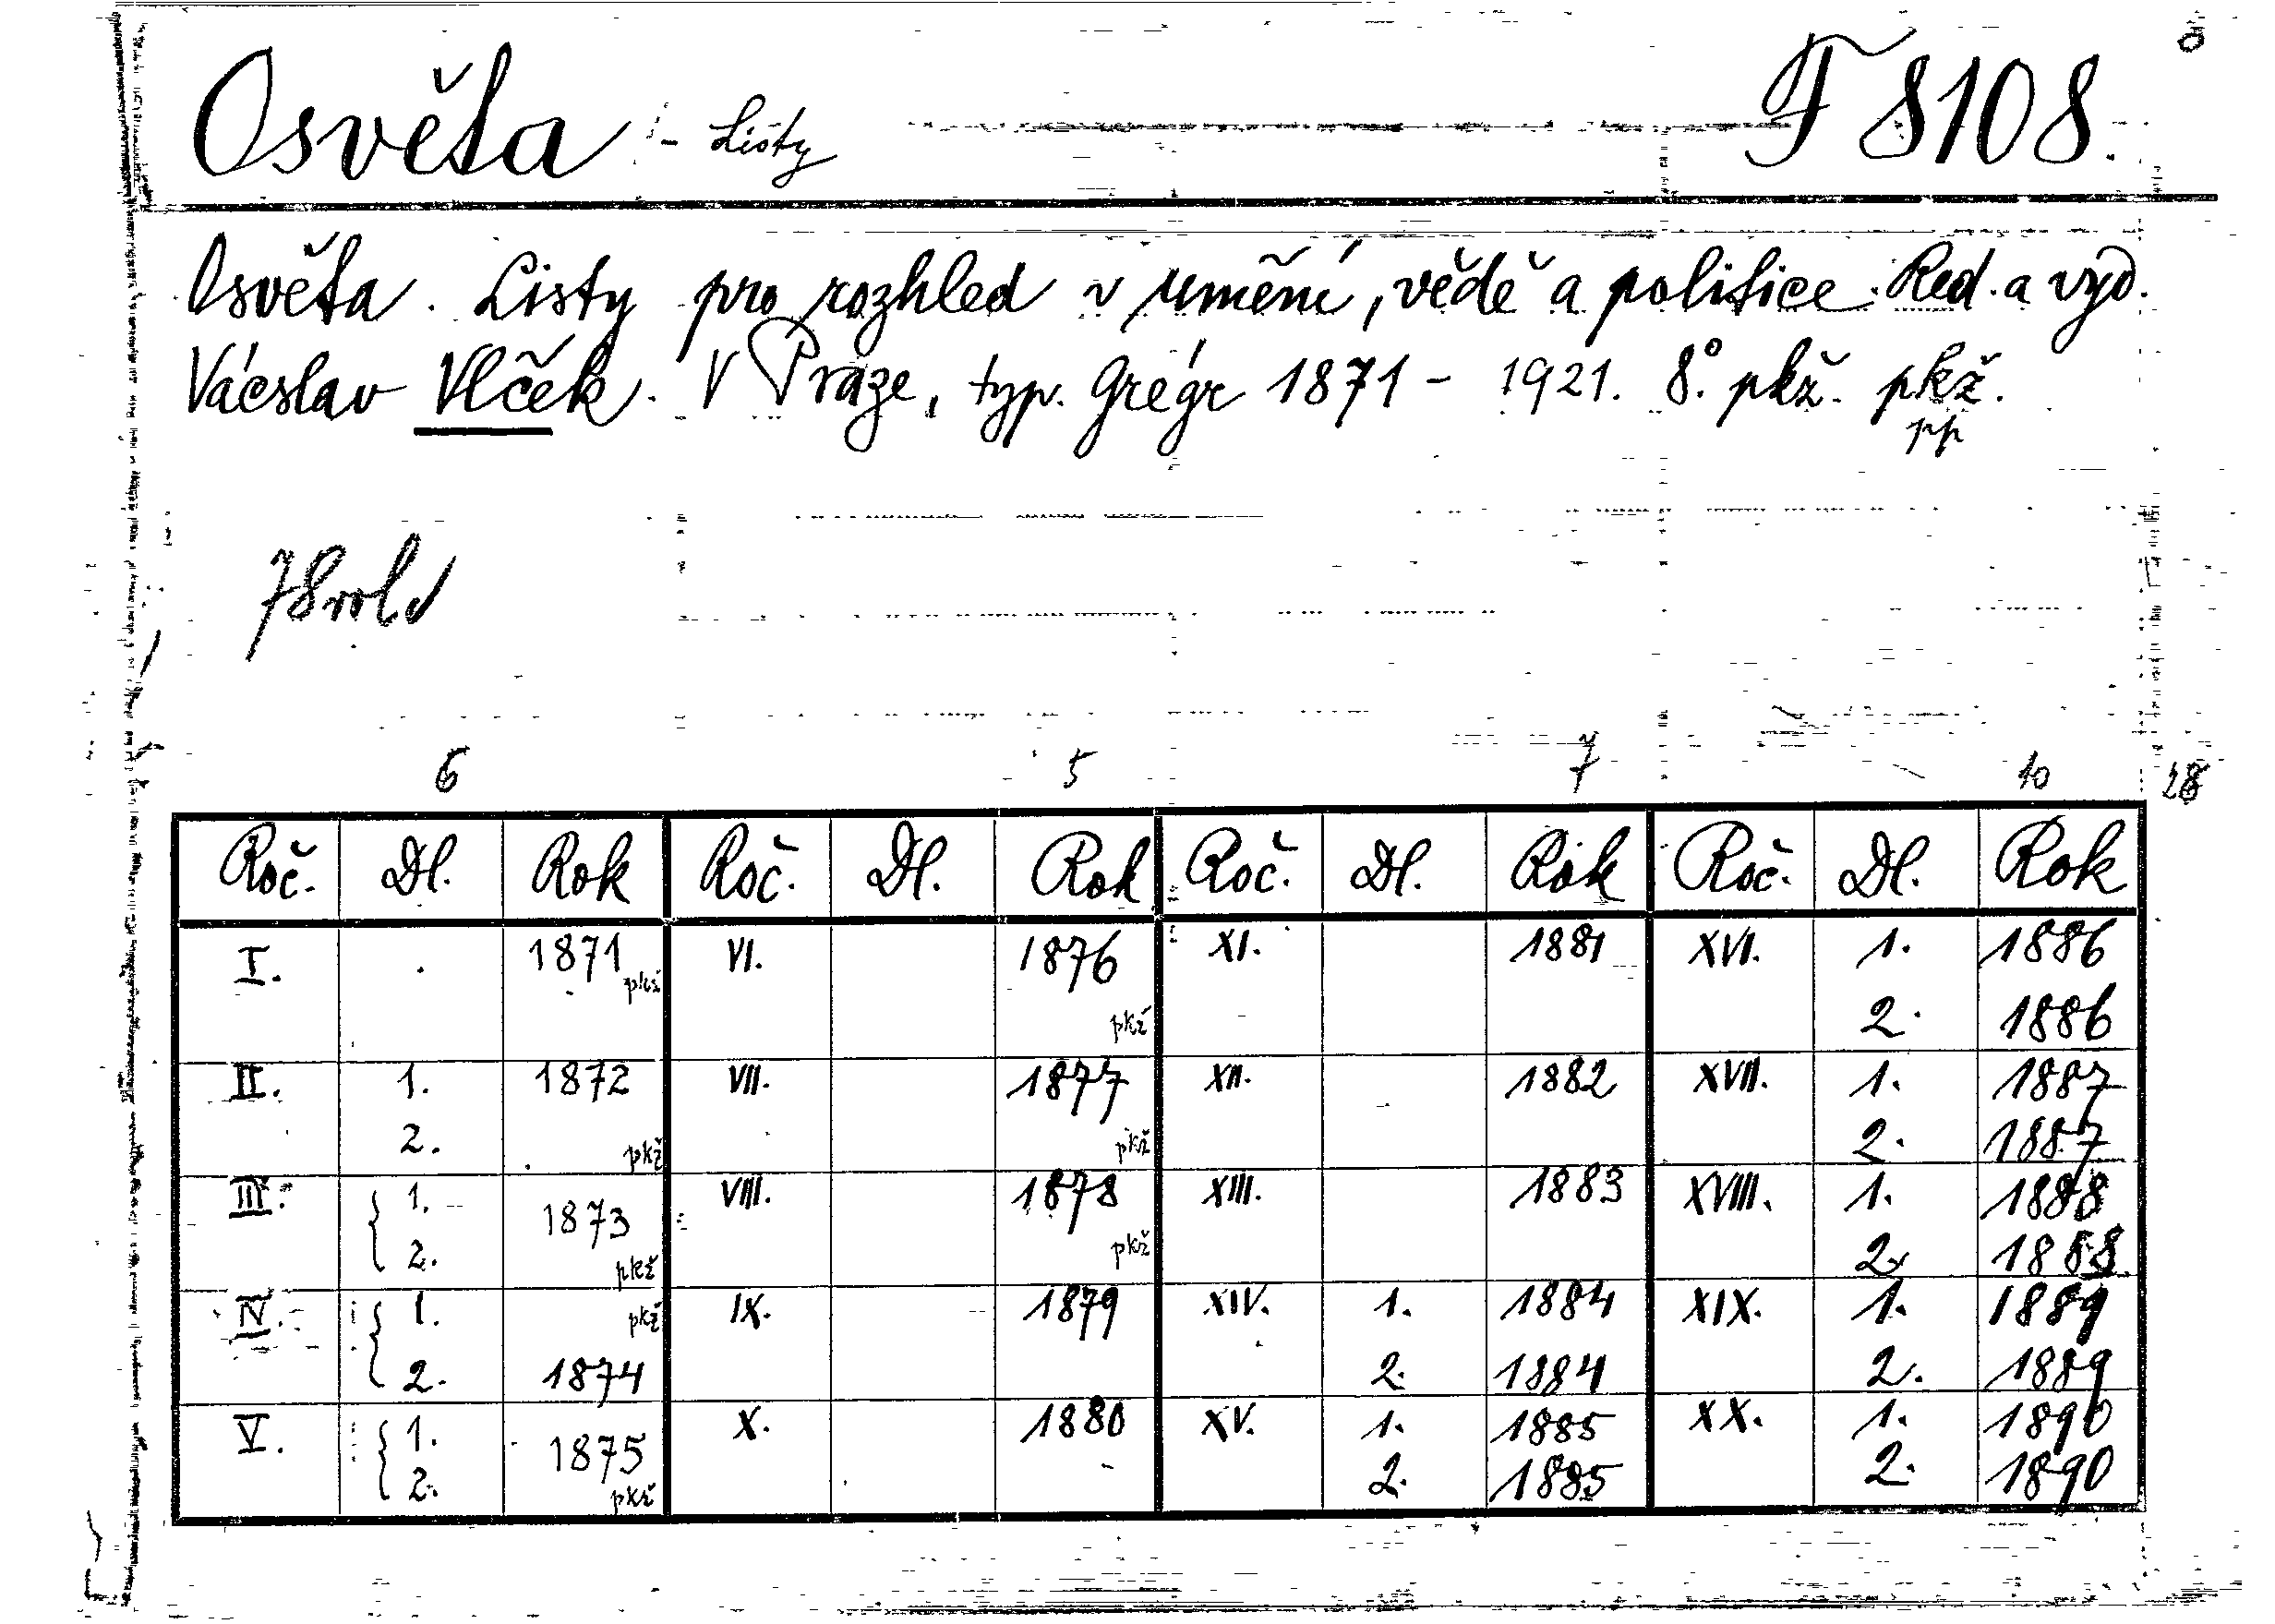 Osvěta - Listy F 8108.
Osvěta. Listy pro rozhled v umění, vědě a politice. Red. a vyd.
Vácslav Vlček. V Praze, typ. Grégr 1871 - 1921. 8° pkž. pkž.
pp
6 5 7 10 28
Roč. Dl. Rok Roč. Dl. Rok Roč. Dl. Rok Roč. Dl. Rok
I. 1871 VI. 1876 XI. 1881 XVI. 1. 1886
pkž
pkž 2. 1886
II. 1. 1872 VII. 1877 XII. 1882 XVII. 1. 1887
2. pkž pkž 2. 1887
III. 1. 1873 VIII. 1878 XIII. 1883 XVIII. 1. 1888
2. pkž pkž 2. 1888
IV. 1. pkž IX. 1879 XIV. 1. 1884 XIX. 1. 1889
2. 1874 2. 1884 2. 1889
V. 1. 1875 X. 1880 XV. 1. 1885 XX. 1. 1890
2. pkž 2. 1885 2. 1890